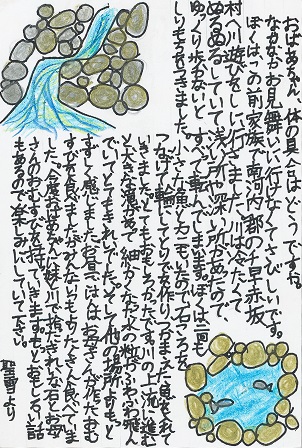 おばあちゃん、体の具合はどうですか。
なかなかお見舞いに行けなくてさびしいです。
ぼくはこの前家族で南河内郡の千早赤坂
村へ川遊びをしに行きました。川は冷たくて
ぬるぬるしていて浅い所や深い所があったので、
ゆっくり歩かないとすべって転んでしまいます。ぼくは二回も
しりもちをつきました。
小さな滝と
つなげて輪にして
いきました。とてもおもしろかったです。川の上流に進む
と大きな滝があって細かな水の粒がふわふわ飛ん
でいてとてもきれいでした。そして他の場所よりもと
すずしく感じました。お昼ごはんはお母さんが作ったおむ
すびを食べました。みんないつもよりたくさん食べていま
した。今度おばあちゃんのお見舞いに川で拾ったきれいな石とお母
さんのおむすびを持っていきます。もっとおもしろい話
もあるので楽しみにしていて下さい。
聖朝より